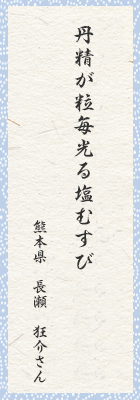 丹精が粒毎光る塩むすび
熊本県 長瀬 狂介さん